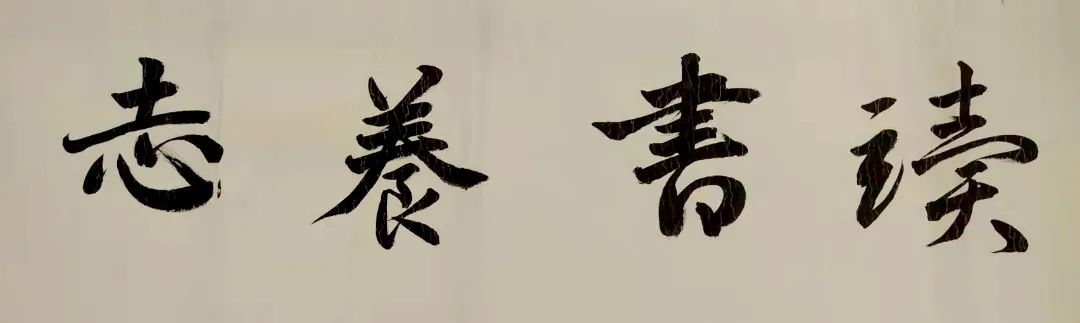 讀書養志